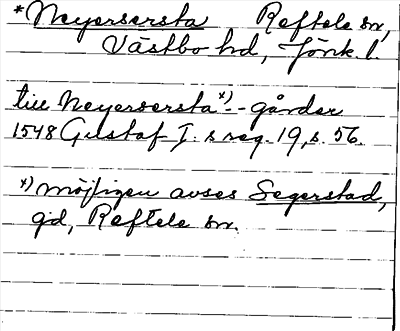 *Neyersersta Reftele sn,
Västbo hd, Jönk. l.
till Neyersersta x) - gårder
1548 Gustaf I:s reg. 19, s. 56.
x) möjligen avses Segerstad,
gd, Reftele sn.